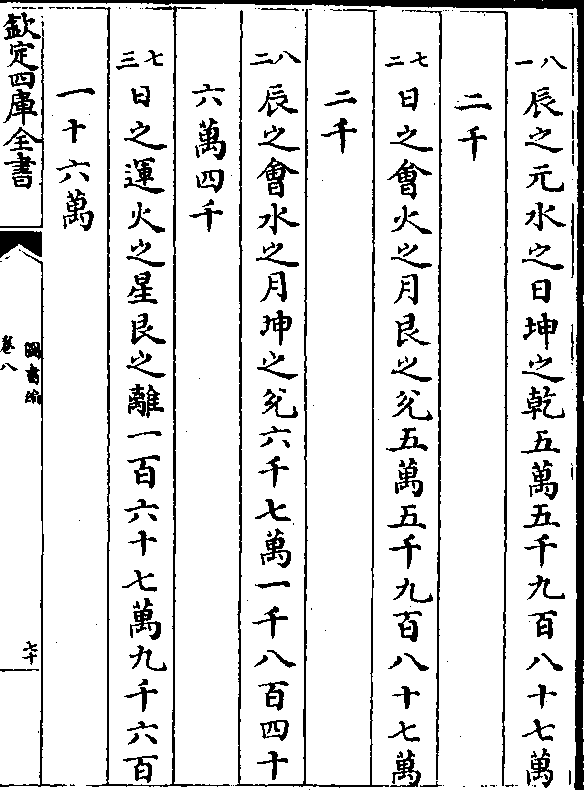 八一 辰之元水之日坤之乾五萬五千九百八十七萬
二千
七二 日之會火之月艮之兊五萬五千九百八十七萬
二千
八二 辰之會水之月坤之兊六千七萬一千八百四十
六萬四千
七三 日之運火之星艮之離一百六十七萬九千六百
一十六萬
欽定四庫全書
圖書編
卷八
七十